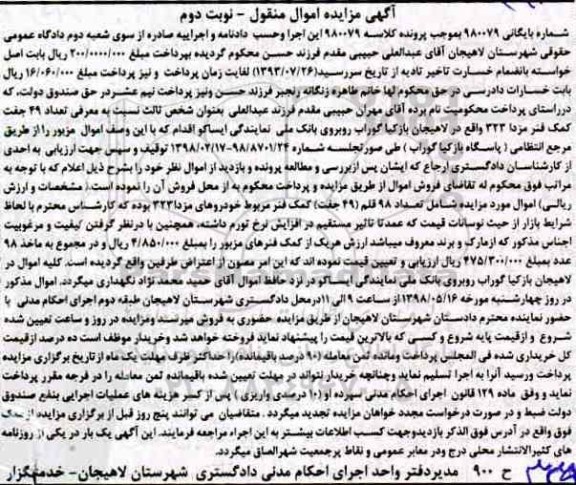 آگهی مزایده اموال منقول - نوبت دوم
شماره بایگانی ۹۸۰۰۷۹ بموجب پرونده کلاسه ۹۸۰۰۷۹ این اجرا وحسب دادنامه و اجراییه صادره از سوی شعبه دوم دادگاه عمومی
حقوقی شهرستان لاهیجان آقای عبدالعلی حبیبی مقدم فرزند حسن محکوم گردیده بپرداخت مبلغ ۲۰۰/۰۰۰/۰۰۰ ریال بابت اصل
خواسته بانضمام خسارت تاخیر تادیه از تاریخ سررسید(۱۳۹۳/۰۷/۲۶) لغایت زمان پرداخت و نیز پرداخت مبلغ ۱۶/۰۶۰/۰۰۰ ریال
بابت خسارات دادرسی در حق محکوم لها خانم طاهره زنگانه رنجبر فرزند حسن ونیز پرداخت نیم عشردر حق صندوق دولت، که
درراستای پرداخت محکومیت نام برده آقای مهران حبیبی مقدم فرزند عبدالعلی بعنوان شخص ثالث نسبت به معرفی تعداد ۴۹ جفت
کمک فنر مزدا ۳۲۳ واقع در لاهیجان بازکیا گوراب روبروی بانک ملی نمایندگی ایساکو اقدام که با این وصف اموال مزبور را از طریق
مرجع انتظامی ( پاسگاه بازکیا گوراب ) طی صورتجلسه شماره ۹۸/۸۷۰۱/۲۴-۱۳۹۸/۰۲/۱۷ توقیف و سپس جهت ارزیابی به احدی
از کارشناسان دادگستری ارجاع که ایشان پس ازبررسی و مطالعه پرونده و بازدید از اموال نظر خود را بشرح ذیل اعلام که با توجه به
مراتب فوق محکوم له تقاضای فروش اموال از طریق مزایده و پرداخت محکوم به از محل فروش آن را نموده است.( مشخصات و ارزش
ریالی) اموال مورد مزایده شامل تعداد ۹۸ قلم (۴۹ جفت) کمک فنر مربوط خودروهای مزدا۳۲۳ بوده که کارشناس محترم با لحاظ
شرایط بازار از حیث نوسانات قیمت که عمدتا تاثیر مستقیم در افزایش نرخ تورم داشته، همچنین با درنظر گرفتن کیفیت و مرغوبیت
اجناس مذکور که ازمارک و برند معروف میباشد ارزش هریک از کمک فنرهای مزبور را بمبلغ ۴/۸۵۰/۰۰۰ ریال و در مجموع به ماخذ ۹۸
عدد بمبلغ ۴۷۵/۳۰۰/۰۰۰ ریال ارزیابی و تعیین قیمت نموده اند که این امر مصون از اعتراض طرفین واقع گردیده است. کلیه اموال در
لاهیجان بازکیا گوراب روبروی بانک ملی نمایندگی ایساکو در نزد حافظ اموال آقای حمید محمد نژاد نگهداری میگردد. اموال مذکور
در روز چهارشنبه مورخه ۱۳۹۸/۰۵/۱۶از ساعت ۹ الی ۱۱درمحل دادگستری شهرستان لاهیجان طبقه دوم اجرای احکام مدنی با
حضور نماینده محترم دادستان شهرستان لاهیجان از طریق مزایده حضوری به فروش میرسند ومزایده در روز و ساعت تعیین شده
شروع و ازقیمت پایه شروع و کسی که بالاترین قیمت را پیشنهاد نماید فروخته خواهد شد وخریدار موظف است ده درصد ازقیمت
کل خریداری شده فی المجلس پرداخت ومانده ثمن معامله (۹۰ درصد باقیمانده)را حداکثر ظرف مهلت یک ماه از تاریخ برگزاری مزایده
پرداخت ورسید آنرا به اجرا تسلیم نماید وچنانچه خریدار نتواند در مهلت تعیین شده باقیمانده ثمن معامله را در فرجه مقرر پرداخت
نماید و وفق ماده ۱۲۹ قانون اجرای احکام مدنی سپرده او (۱۰ درصدی واریزی ) پس از کسر هزینه های عملیات اجرایی بنفع صندوق
دولت ضبط و در صورت درخواست مجدد خواهان مزایده تجدید میگردد . متقاضیان می توانند پنج روز قبل از برگزاری مزایده از
فوق واقع در آدرس فوق الذکر بازدیدوجهت کسب اطلاعات بیشتر به این اجراء مراجعه فرمایند. این آگهی یک بار در یکی از روزنامه
های کثیرالانتشار محلی درج ودر معابر عمومی و نقاط پرجمعیت شهرالصاق میگردد.
ح ۹۰۰ مدیردفتر واحد اجرای احکام مدنی دادگستری شهرستان لاهیجان- خدمتگزار